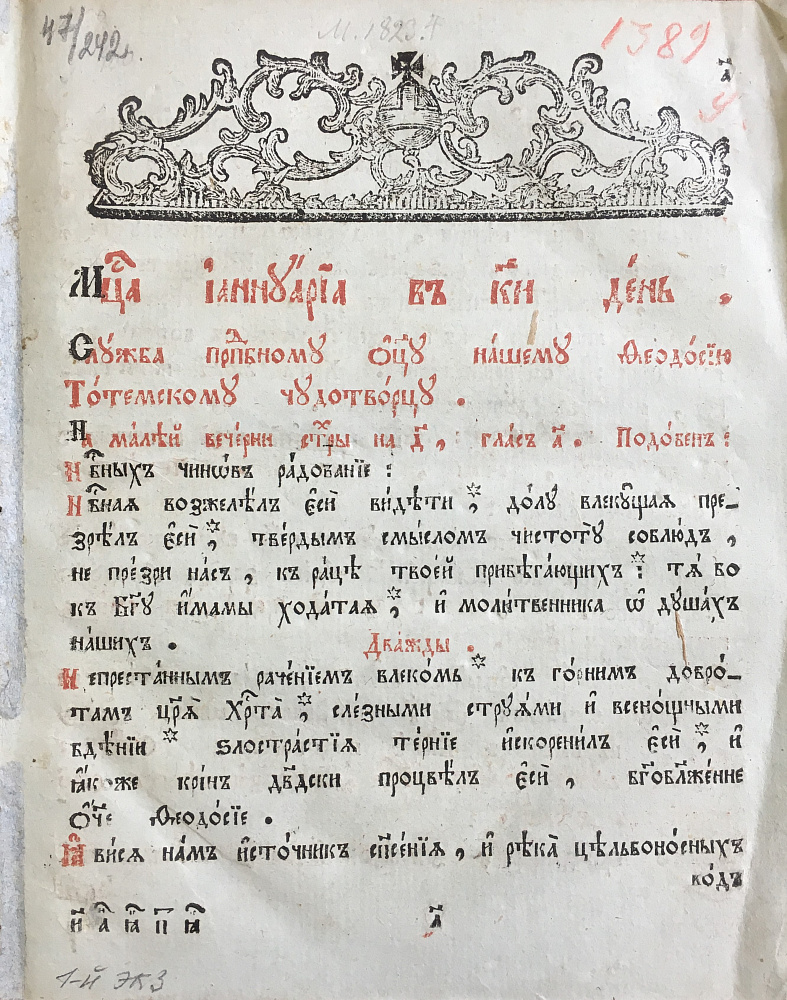 47/242.
М. 1823.
1389
а҃
Мц҃а і҆аннꙋа́рїа въ к҃и де́нь .
Слꙋ́жба прпⷣбномꙋ ѻ҆ц҃ꙋ на́шемꙋ Ѳеодо́сїю
То́темскомꙋ чꙋдотво́рцꙋ .
На ма́лѣй вече́рни стⷯры на д҃ , гла́съ а҃ . Подо́бенъ :
Нбⷭ҇ныхъ чинѡ́въ ра́дованїе :
Нбⷭ҇ная возжелѣ́лъ є҆сѝ ви́дѣти * , до́лꙋ влекꙋ́щая пре_
зрѣ́лъ є҆сѝ * , тве́рдымъ смы́сломъ чистотꙋ̀ соблю́дъ ,
не пре́зри на́съ , къ ра́цѣ твое́й прибѣга́ющихъ * : тѧ́ бо
къ Бг҃ꙋ и҆́мамы хода́таѧ * , и҆ моли́твенника ѡ҆ дꙋша́хъ
на́шихъ . Два́жды .
Непреста́ннымъ раче́нїемъ влеко́мь * къ го́рнимъ добро́_
тамъ цр҃ѧ̀ Хрⷭ҇та̀ * , сле́зными стрꙋѧ́ми и҆ всено́щными
бдѣ́нїи * ѕлостра́стїѧ те́рнїе и҆скорени́лъ є҆сѝ * , и҆
ꙗ҆́коже крі́нъ дв҃дски процвѣ́лъ є҆сѝ , бг҃облаже́нне
ѻ҆́ч҃е Ѳеодо́сїе .
Ꙗ҆ви́сѧ на́мъ и҆сто́чникъ сп҃се́нїѧ , и҆ рѣка̀ цѣльбоно́сныхъ
во́дъ
а҃
1-й экз